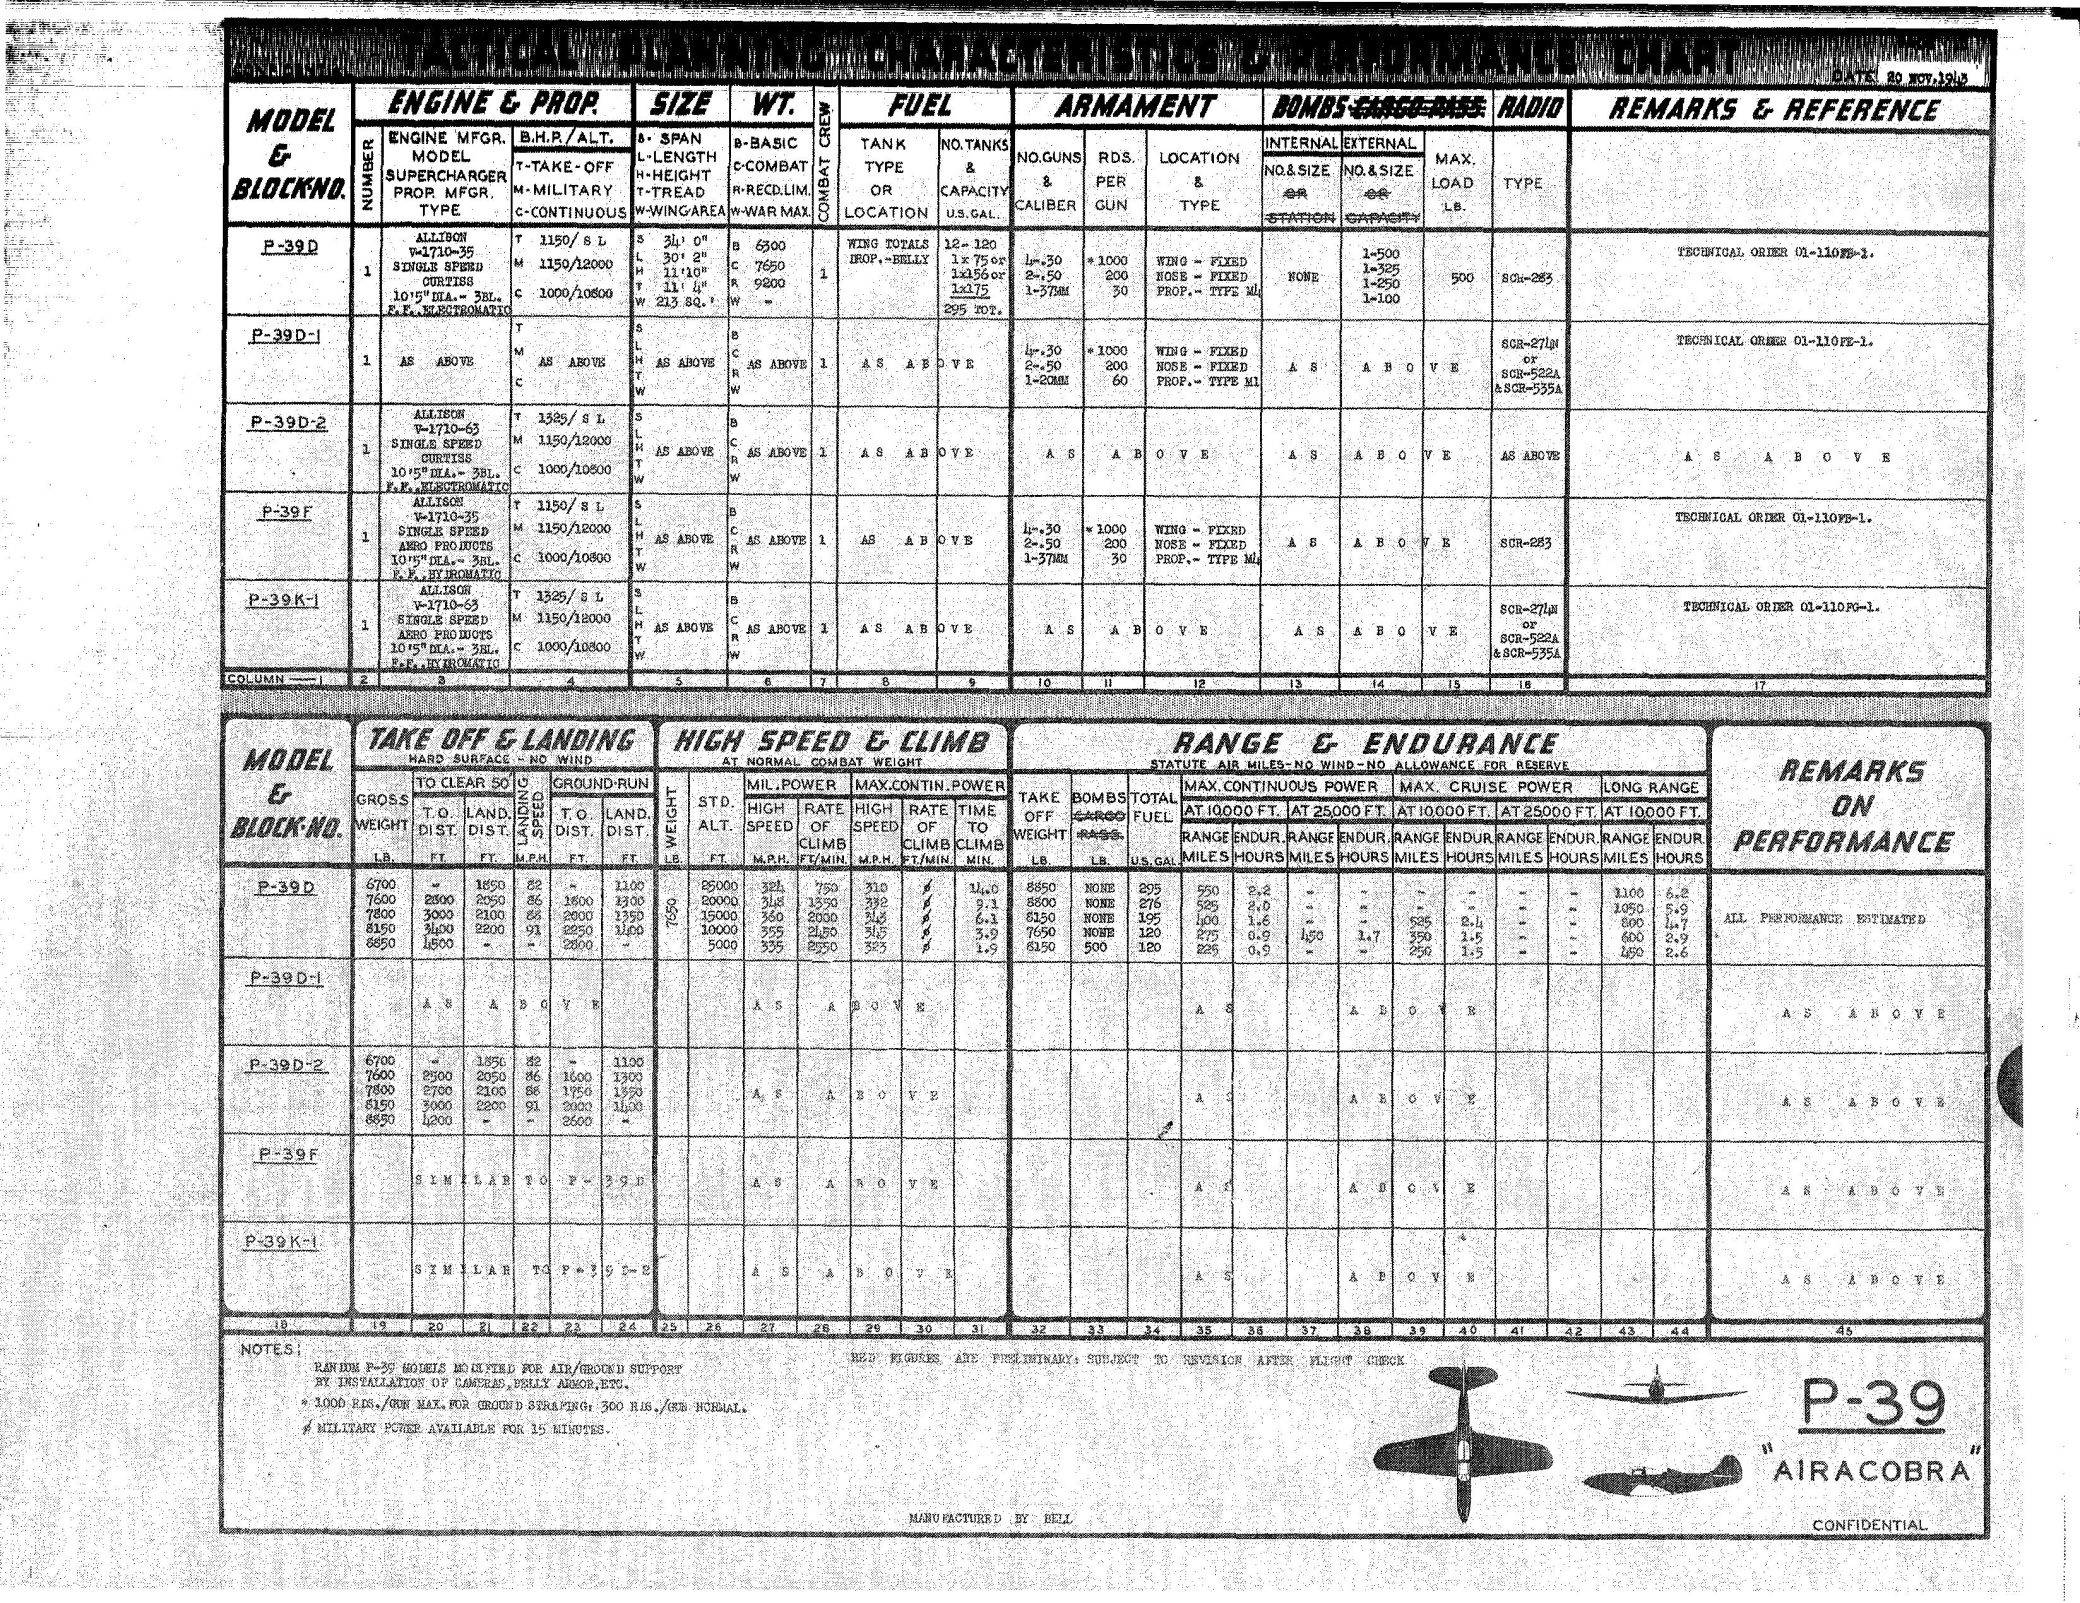 TACTICAL PLANNING CHARACTERISTICS & PERFORMANCE CHART
DATE 20 NOV. 1943
MODEL & BLOCK-NO. ENGINE & PROP. SIZE WT. COMBAT CREW FUEL ARMAMENT BOMBS CARGO-PASS. RADIO REMARKS & REFERENCE
NUMBER
ENGINE MFGR.
MODEL
SUPERCHARGER
PROP. MFGR.
TYPE
B.H.P./ALT.
T-TAKE-OFF
M-MILITARY
C-CONTINUOUS
S- SPAN
L-LENGTH
H-HEIGHT
T-TREAD
W-WING AREA
B-BASIC
C-COMBAT
R-RECD.LIM.
W-WAR MAX.
TANK TYPE OR LOCATION
NO. TANKS & CAPACITY U.S. GAL.
NO. GUNS & CALIBER
RDS. PER GUN
LOCATION & TYPE
INTERNAL NO. & SIZE OR STATION
EXTERNAL NO. & SIZE OR CAPACITY
MAX. LOAD LB.
TYPE
P-39D
1
ALLISON
V-1710-35
SINGLE SPEED
CURTISS
10'5" DIA.- 3BL.
F.F. ELECTROMATIC
T 1150/ S L
M 1150/12000
C 1000/10800
S 34' 0"
L 30' 2"
H 11'10"
T 11' 4"
W 213 SQ.'
B 6300
C 7650
R 9200
W -
1
WING TOTALS 12- 120
DROP.-BELLY 1x 75 or
1x156 or
1x175
295 TOT.
4-.30 *1000 WING - FIXED
2-.50 200 NOSE - FIXED
1-37MM 30 PROP.- TYPE M4
NONE
1-500
1-325
1-250
1-100
500
SCR-283
TECHNICAL ORDER 01-110FB-1.
P-39D-1
1 AS ABOVE
T
M
C
AS ABOVE
S
L
H
T
W
AS ABOVE
B
C
R
W
AS ABOVE 1 AS ABOVE
4-.30 *1000 WING - FIXED
2-.50 200 NOSE - FIXED
1-20MM 60 PROP.- TYPE M1
AS ABOVE
SCR-274N
or
SCR-522A
& SCR-535A
TECHNICAL ORDER 01-110FE-1.
P-39D-2
1
ALLISON
V-1710-63
SINGLE SPEED
CURTISS
10'5" DIA.- 3BL.
F.F. ELECTROMATIC
T 1325/ S L
M 1150/12000
C 1000/10800
S
L
H
T
W
AS ABOVE
B
C
R
W
AS ABOVE 1 AS ABOVE AS ABOVE AS ABOVE AS ABOVE AS ABOVE
P-39F
1
ALLISON
V-1710-35
SINGLE SPEED
AERO PRODUCTS
10'5" DIA.- 3BL.
F.F. HYDROMATIC
T 1150/ S L
M 1150/12000
C 1000/10800
S
L
H
T
W
AS ABOVE
B
C
R
W
AS ABOVE 1 AS ABOVE
4-.30 *1000 WING - FIXED
2-.50 200 NOSE - FIXED
1-37MM 30 PROP.- TYPE M4
AS ABOVE SCR-283
TECHNICAL ORDER 01-110FB-1.
P-39K-1
1
ALLISON
V-1710-63
SINGLE SPEED
AERO PRODUCTS
10'5" DIA.- 3BL.
F.F. HYDROMATIC
T 1325/ S L
M 1150/12000
C 1000/10800
S
L
H
T
W
AS ABOVE
B
C
R
W
AS ABOVE 1 AS ABOVE AS ABOVE AS ABOVE
SCR-274N
or
SCR-522A
& SCR-535A
TECHNICAL ORDER 01-110FG-1.
COLUMN — 1 2 3 4 5 6 7 8 9 10 11 12 13 14 15 16 17
MODEL & BLOCK-NO.
TAKE OFF & LANDING
HARD SURFACE - NO WIND
HIGH SPEED & CLIMB
AT NORMAL COMBAT WEIGHT
RANGE & ENDURANCE
STATUTE AIR MILES-NO WIND-NO ALLOWANCE FOR RESERVE
REMARKS ON PERFORMANCE
GROSS WEIGHT LB.
TO CLEAR 50'
T.O. DIST. FT.
LAND. DIST. FT.
LANDING SPEED M.P.H.
GROUND-RUN
T.O. DIST. FT.
LAND. DIST. FT.
WEIGHT LB.
STD. ALT. FT.
MIL. POWER
HIGH SPEED M.P.H.
RATE OF CLIMB FT/MIN.
MAX. CONTIN. POWER
HIGH SPEED M.P.H.
RATE OF CLIMB FT/MIN.
TIME TO CLIMB MIN.
TAKE OFF WEIGHT LB.
BOMBS CARGO PASS. LB.
TOTAL FUEL U.S. GAL
MAX. CONTINUOUS POWER MAX. CRUISE POWER LONG RANGE
AT 10,000 FT. AT 25,000 FT. AT 10,000 FT. AT 25,000 FT. AT 10,000 FT.
RANGE MILES ENDUR. HOURS RANGE MILES ENDUR. HOURS RANGE MILES ENDUR. HOURS RANGE MILES ENDUR. HOURS RANGE MILES ENDUR. HOURS
P-39D
6700 - 1850 82 - 1100 7650 25000 324 750 310 ∮ 14.0 8850 NONE 295 550 2.2 - - - - - - 1100 6.2
7600 2800 2050 86 1800 1300 20000 348 1350 332 ∮ 9.1 8800 NONE 276 525 2.0 - - - - - - 1050 5.9
7800 3000 2100 88 2000 1350 15000 360 2000 343 ∮ 6.1 8150 NONE 195 400 1.6 - - 525 2.4 - - 800 4.7
8150 3400 2200 91 2250 1400 10000 355 2450 345 ∮ 3.9 7650 NONE 120 275 0.9 450 1.7 350 1.5 - - 600 2.9
8850 4500 - - 2800 - 5000 335 2550 323 ∮ 1.9 8150 500 120 225 0.9 - - 250 1.5 - - 450 2.6
ALL PERFORMANCE ESTIMATED
P-39D-1
AS ABOVE AS ABOVE AS ABOVE AS ABOVE
P-39D-2
6700 - 1850 82 - 1100
7600 2500 2050 86 1600 1300
7800 2700 2100 88 1750 1350
8150 3000 2200 91 2000 1400
8850 4200 - - 2600 -
AS ABOVE AS ABOVE AS ABOVE
P-39F
SIMILAR TO P-39D AS ABOVE AS ABOVE AS ABOVE
P-39K-1
SIMILAR TO P-39D-2 AS ABOVE AS ABOVE AS ABOVE
18 19 20 21 22 23 24 25 26 27 28 29 30 31 32 33 34 35 36 37 38 39 40 41 42 43 44 45
NOTES:
RANDOM P-39 MODELS MODIFIED FOR AIR/GROUND SUPPORT
BY INSTALLATION OF CAMERAS, BELLY ARMOR, ETC.
* 1000 RDS./GUN MAX. FOR GROUND STRAFING; 300 RDS./GUN NORMAL.
∮ MILITARY POWER AVAILABLE FOR 15 MINUTES.
RED FIGURES ARE PRELIMINARY: SUBJECT TO REVISION AFTER FLIGHT CHECK
P-39
"AIRACOBRA"
MANUFACTURED BY BELL
CONFIDENTIAL